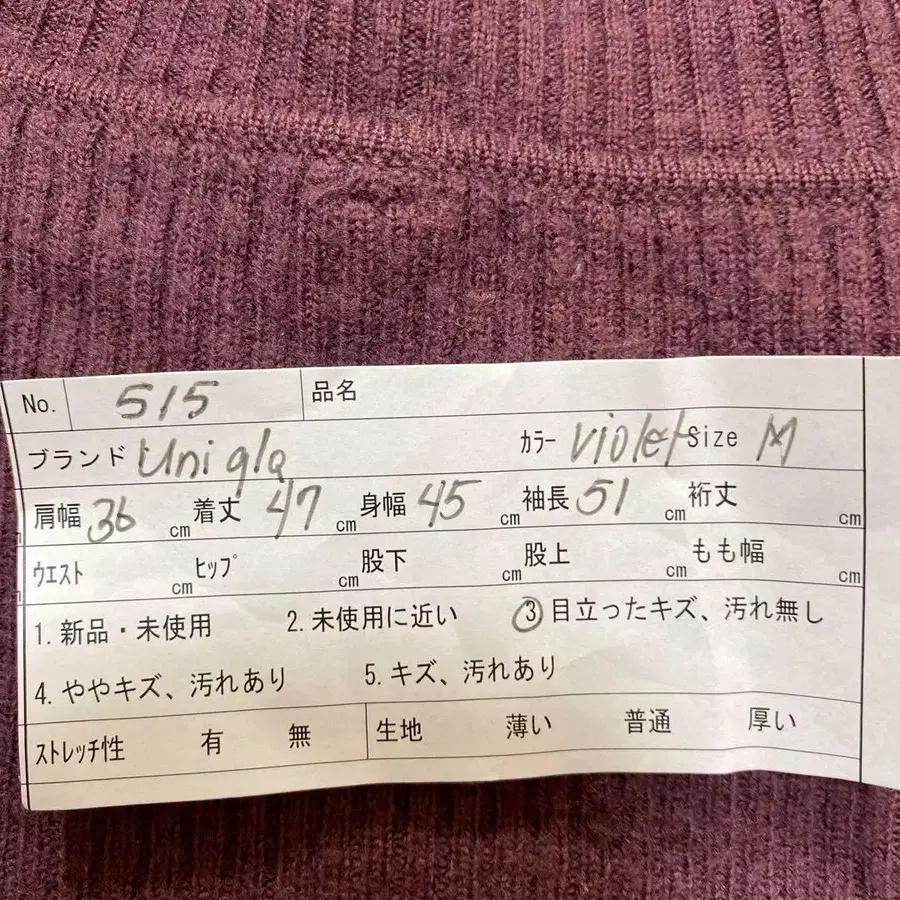 No. 515 品名
ブランド Uniqlo カラー Violet Size M
肩幅 36 cm 着丈 47 cm 身幅 45 cm 袖長 51 cm 裄丈 cm
ウエスト cm ヒップ cm 股下 cm 股上 cm もも幅 cm
1. 新品・未使用 2. 未使用に近い 3 目立ったキズ、汚れ無し
4. ややキズ、汚れあり 5. キズ、汚れあり
ストレッチ性 有 無 生地 薄い 普通 厚い